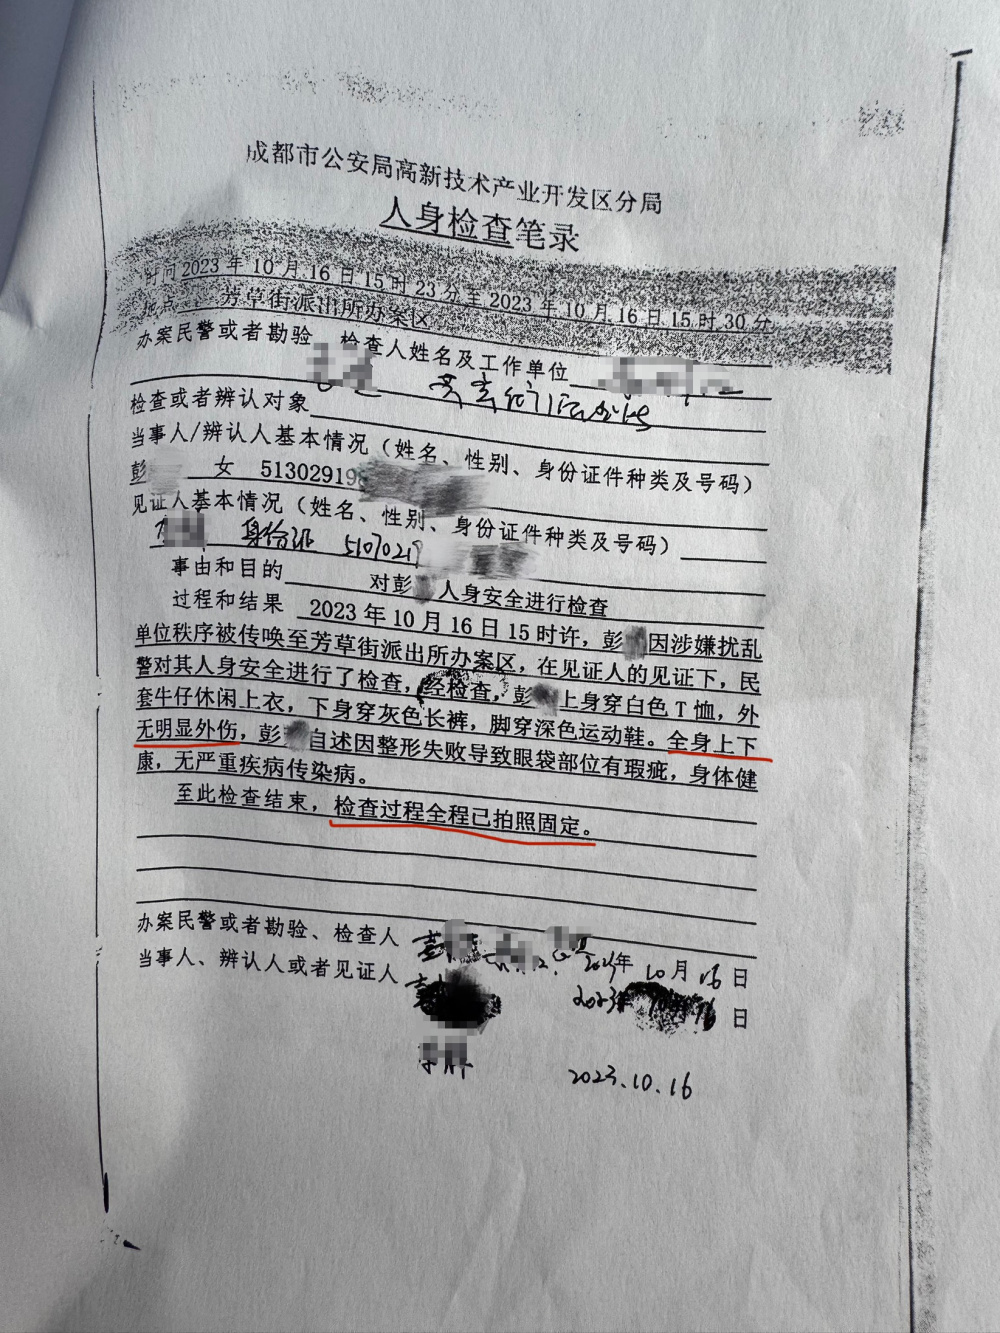 成都市公安局高新技术产业开发区分局
人身检查笔录
时间2023年10月16日15时23分至2023年10月16日15时30分
地点 芳草街派出所办案区
办案民警或者勘验、检查人姓名及工作单位
检查或者辨认对象
当事人/辨认人基本情况（姓名、性别、身份证件种类及号码）
彭 女 51302919
见证人基本情况（姓名、性别、身份证件种类及号码）
身份证 51070219
事由和目的 对彭 人身安全进行检查
过程和结果 2023年10月16日15时许，彭 因涉嫌扰乱
单位秩序被传唤至芳草街派出所办案区，在见证人的见证下，民
警对其人身安全进行了检查，经检查，彭 上身穿白色T恤，外
套牛仔休闲上衣，下身穿灰色长裤，脚穿深色运动鞋。全身上下
无明显外伤，彭 自述因整形失败导致眼袋部位有瑕疵，身体健
康，无严重疾病传染病。
至此检查结束，检查过程全程已拍照固定。
办案民警或者勘验、检查人 年10月16日
当事人、辨认人或者见证人 2023年10月16日
2023.10.16